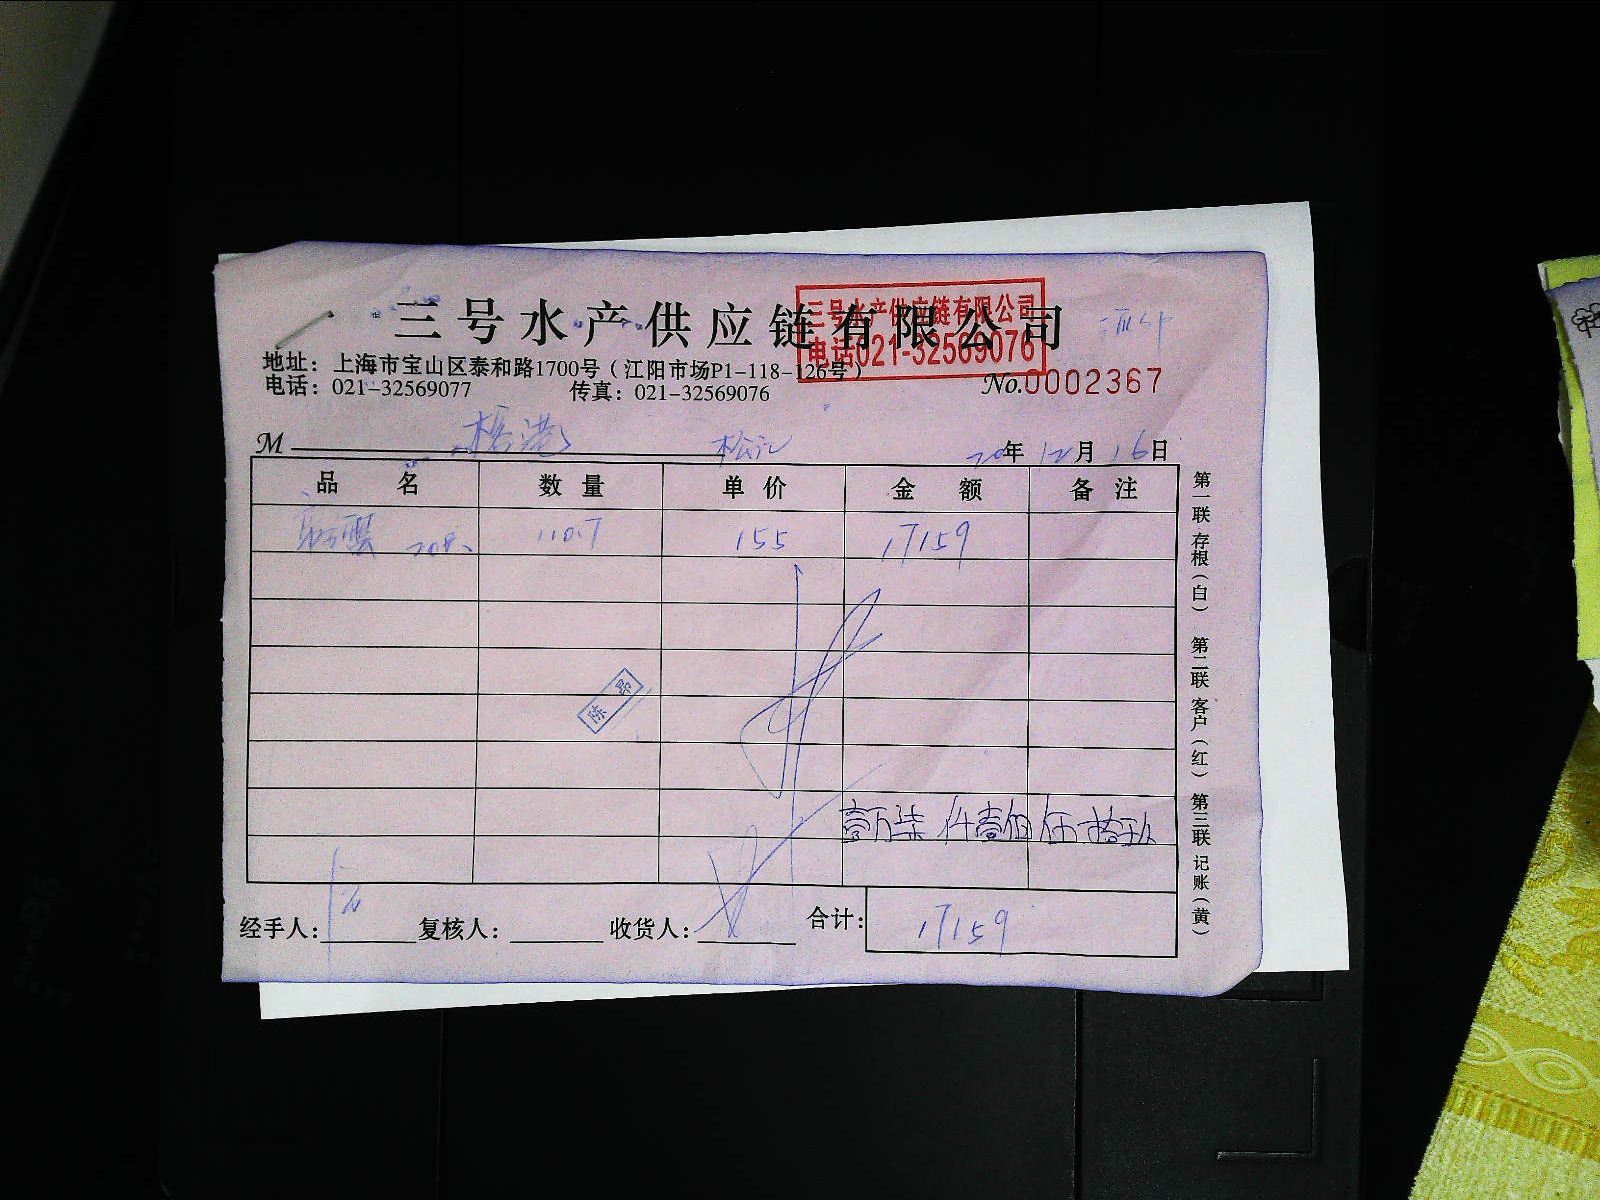 三号水产供应链有限公司
三号水产供应链有限公司
电话021-32569076
地址：上海市宝山区泰和路1700号（江阳市场P1-118-126号）
电话：021-32569077 传真：021-32569076
No.0002367
M 松江 20年12月16日
品名 数量 单价 金额 备注
110.7 155 17159
陈昂
壹万柒仟壹佰伍拾玖
经手人： 复核人： 收货人： 合计：17159
第一联 存根（白） 第二联 客户（红） 第三联 记账（黄）